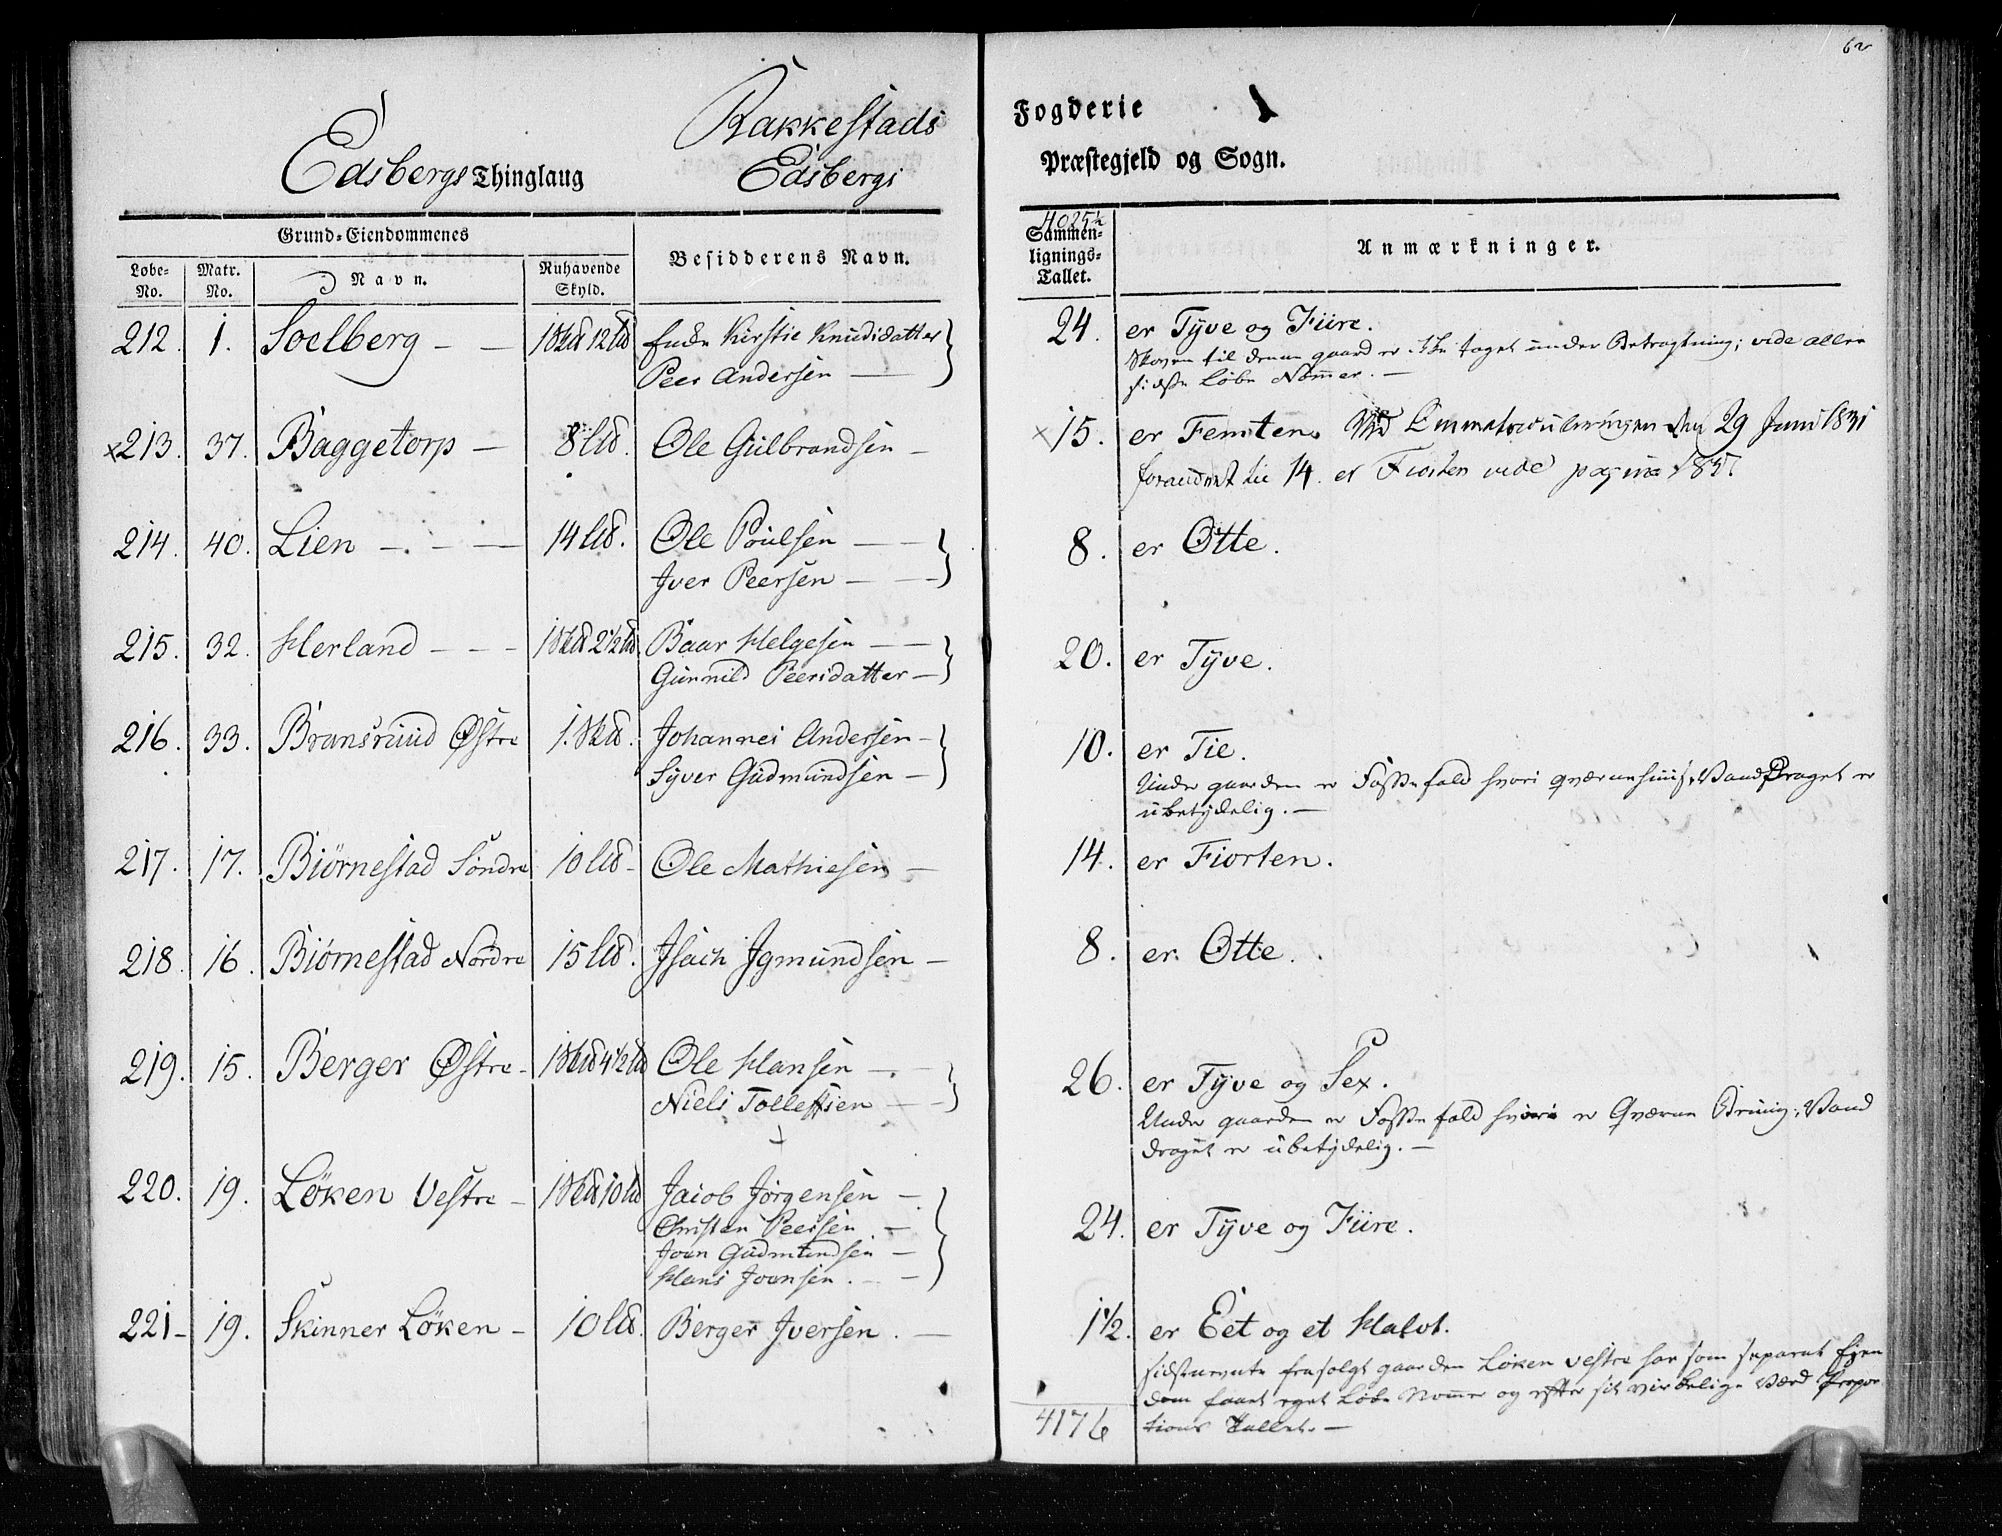 62
Rakkestads Fogderie 1
Edsbergs Thinglaug Edsbergs Præstegjeld og Sogn.
Grund-Eiendommenes
Løbe-No. Matr. No. Navn. Nuhavende Skyld. Besidderens Navn. Sammenlignings-Tallet. Anmærkninger.
4025½
212. 1. Soelberg 1 Skd 12 Ld Enke Kirstie Knudsdatter 24. er Tyve og Fiire.
Peer Andersen Skoven til denne gaard er ikke taget under Betragtning; vide aller
sidste Løbe Nommer.
x213. 37. Baggetorp 8 Ld. Ole Gulbrandsen x15. er Femten. Ved den 29 Juni 1831
forandret til 14. er Fiorten vide pagina 185.
214. 40. Lien 14 Ld. Ole Poulsen 8. er Otte.
Iver Peersen
215. 32. Herland 1 Skd 2½ Ld Baar Helgesen 20. er Tyve.
Gunnild Peersdatter
216. 33. Bransruud Østre 1. Skd. Johannes Andersen 10. er Tie.
Syver Gudmundsen Under gaarden er Fossefald hvori qværnehuus, Vand Draget er
ubetydelig.
217. 17. Biørnestad Søndre 10 Ld Ole Mathiesen 14. er Fiorten.
218. 16. Biørnestad Nordre 15 Ld. Isach Igmundsen 8. er Otte.
219. 15. Berger Østre 1 Skd 4½ Ld Ole Hansen 26. er Tyve og Sex.
Niels Tollefsen Under gaarden er Fossefald hvori er Qværne Bruug; Vand
draget er ubetydelig.
220. 19. Løken Vestre 1 Skd 10 Ld Jacob Jørgensen 24. er Tyve og Fiire.
Christen Peersen
Joen Gudmundsen
Hans Joensen.
221 19. Skinner Løken 10 Ld. Berger Iversen. 1½. er Eet og et Halvt.
sidstnevnte frasolgt gaarden Løken Vestre har som separat Ejen
dom faaet eget Løbe Nommer og efter sit virkelige Værd Propor
tions Tallet.
4176